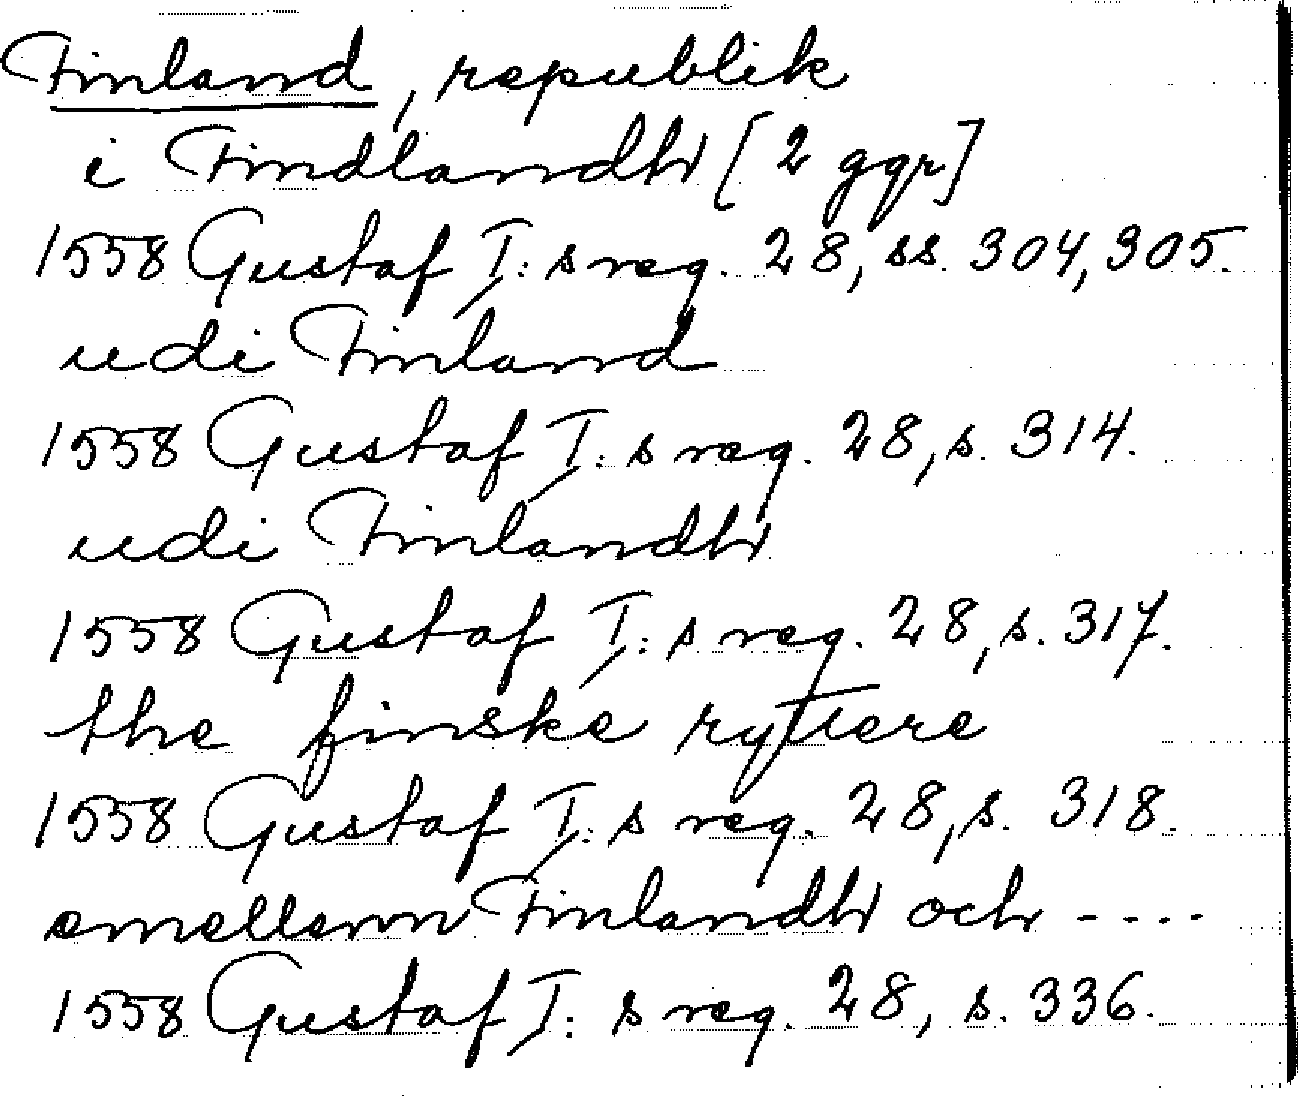 Finland, republik
i Findlandh [2 ggr]
1558 Gustaf I:s reg. 28, ss. 304, 305.
udi Finland
1558 Gustaf I:s reg. 28, s. 314.
udi Finlandh
1558 Gustaf I:s reg. 28, s. 317.
the finske ryttere
1558 Gustaf I:s reg. 28, s. 318.
emellenn Finlandh och ----
1558 Gustaf I:s reg. 28, s. 336.